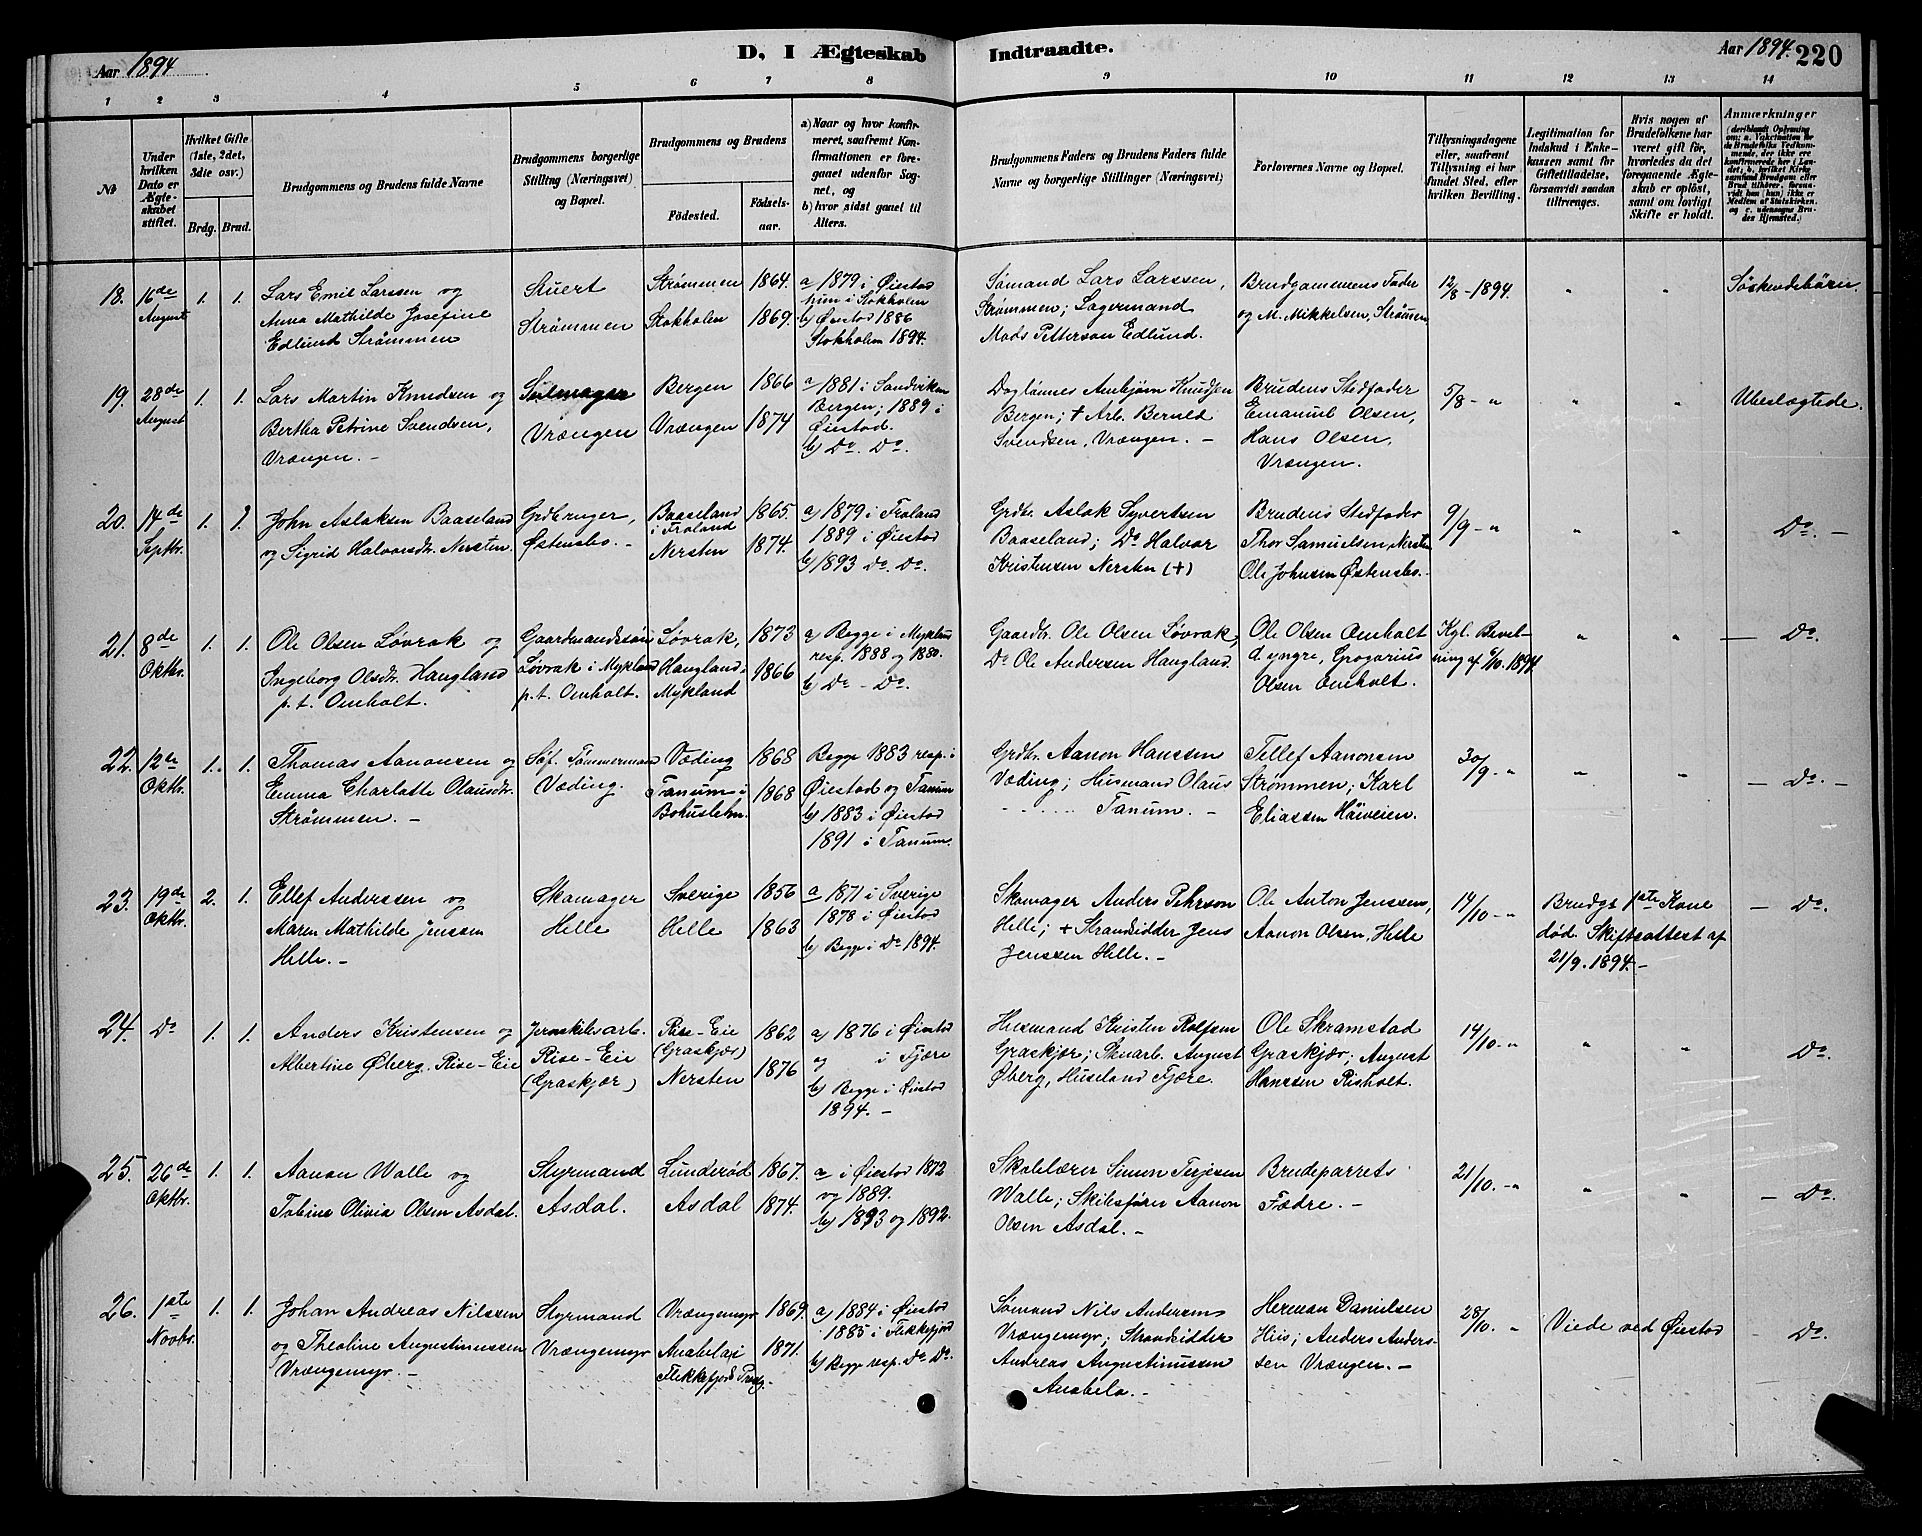 Aar 1894
D, I Ægteskab
Indtraadte.
Aar 1894.
220
1 2 3 4 5 6 7 8 9 10 11 12 13 14
№
Under hvilken Dato er Ægteskabet stiftet.
Hvilket Gifte (1ste, 2det, 3die osv.)
Brdg. Brud.
Brudgommens og Brudens fulde Navne
Brudgommens borgerlige Stilling (Næringsvei) og Bopæl.
Brudgommens og Brudens
Födested.
Födselsaar.
a) Naar og hvor konfirmeret, saafremt Konfirmationen er foregaaet udenfor Sognet, og
b) hvor sidst gaaet til Alters.
Brudgommens Faders og Brudens Faders fulde Navne og borgerlige Stillinger (Næringsvei)
Forlovernes Navne og Bopæl.
Tillysningsdagene eller, saafremt Tillysning ei har fundet Sted, efter hvilken Bevilling.
Legitimation for Indskud i Enkekassen samt for Giftetilladelse, forsaavidt saadan tiltrænges.
Hvis nogen af Brudefolkene har været gift før, hvorledes da det foregaaende Ægteskab er oplöst, samt om lovligt Skifte er holdt.
Anmærkninger
(deriblandt Oplysning om: a. Vakcination for de Brudefolks Vedkommende, der ikke ere konfirmerede her i Landet, b. hvilket Kirkesamfund Brudgom eller Brud tilhörer, forsaavidt han (hun) ikke er Medlem af Statskirken, og c. udensogns Brudes Hjemsted.
18. 16de August 1. 1.
Lars Emil Larssen og
Anna Mathilde Josefine
Edlund Strømmen
Stuert
Strømmen
Strømmen 1864.
Stokholm 1869.
a 1879 i Øiestad
hun i Stokholm
b) Øiestad 1886
Stokholm 1894.
Sømand Lars Larssen,
Strømmen; Lagermand
Mads Petterson Edlund.
Brudgommens Fader
og M. Mikkelsen, Strømmen
12/8 - 1894. " "
Søskendebörn.
19. 28de August 1. 1.
Lars Martin Knudsen og
Bertha Petrine Svendsen,
Vrængen. -
Seilmager
Vrængen
Bergen 1866
Vrængen 1874
a 1881 i Sandviken
Bergen; 1889 i
Øiestad.
b) Do. Do.
Daglönnes Anbjørn Knudsen
Bergen; + Arb. Bernth
Svendsen, Vrængen. -
Brudens Stedfader
Emanuel Olsen,
Hans Olsen,
Vrængen.
5/8 - " " "
Ubeslægtede.
20. 14de Septbr. 1. 1.
John Aslaksen Baaseland
og Sigrid Halvorsdtr. Nersten.
Grdbruger,
Østensbo. -
Baaseland i Froland 1865.
Nersten 1874.
a) 1879 i Froland
1889 i Øiestad
b) 1893 Do. Do.
Grdbr. Aslak Syvertsen
Baaseland; Do Halvor
Kristensen Nersten (+)
Brudens Stedfader
Thor Samuelsen, Nersten
Ole Johnsen Østensbo.
9/9 - " " "
Do. -
21. 8de Oktbr. 1. 1.
Ole Olsen Løvrak og
Ingeborg Olsdtr. Haugland
p. t. Omholt.
Gaardmandssön
Løvrak i Mykland
p. t. Omholt.
Løvrak, 1873
Haugland i Mykland 1866
a) Begge i Mykland
resp. 1888 og 1880.
b) Do - Do.
Gaardbr. Ole Olsen Løvrak,
Do Ole Andersen Haugland.
Ole Olsen Omholt
d. yngre, Gregorius
Olsen Omholt.
Kgl. Bevilning af 6/10. 1894 " "
- Do.
22. 12te Oktbr. 1. 1.
Thomas Aanonsen og
Emma Charlotte Olausdtr.
Strømmen. -
Søf. Tømmermand
Væding.
Væding 1868
Tanum i Bohuslehn. 1868
Begge 1883 resp. i
Øiestad og Tanum
b) 1883 i Øiestad
1891 i Tanum.
Grdbr. Aanon Hanssen
Væding; Husmand Olaus
- - - Tanum. -
Tellef Aanonsen
Strømmen; Karl
Eliassen Håiveien.
30/9 - " " "
- Do. -
23. 19de Oktbr. 2. 1.
Ellef Anderssen og
Maren Mathilde Jenssen
Helle. -
Skomager
Helle
Sverige 1856
Helle 1863
a 1871 i Sverige
1878 i Øiestad
b) Begge i Do 1894.
Skomager Anders Pehrson
Helle; + Strandsidder Jens
Jenssen Helle. -
Ole Anton Jenssen,
Aanon Olsen, Helle
14/10 - "
Brudgs. 1ste Kone
død. Skifteattest af
21/9. 1894. -
- Do.
24. Do 1. 1.
Anders Kristensen og
Albertine Øberg. Rise-Eie
Jernskibsarb.
Rise-Eie
(Graskjær)
Rise-Eie (Graskjær) 1862
Nersten 1876
a) 1876 i Øiestad
og i Fjære
b) Begge i Øiestad
1894. -
Husmand Kristen Rolfsen
Graskjær; Stenarb. August
Øberg, Huseland Fjære.
Ole Skramstad
Graskjær; August
Hanssen Risholt.
14/10 - " " "
Do.
25. 26de Oktbr. 1. 1.
Aanon Walle og
Tobine Olivia Olsen Asdal.
Styrmand
Asdal.
Lunderød 1867.
Asdal 1874.
a i Øiestad 1872
og 1889.
b) 1893 og 1892.
Skolelærer Simon Terjesen
Walle; Skibsfører Aanon
Olsen Asdal. -
Brudeparrets
Fædre. -
21/10. - " " "
- Do.
26. 1ste Novbr. 1. 1.
Johan Andreas Nilssen
og Theoline Augustinussen
Vrængemyr. -
Styrmand
Vrængemyr
Vrængemyr 1869.
Anabelø i Flekkefjords Prstg. 1871.
a) 1884 i Øiestad
1885 i Flekkefjord
b) Begge resp. Do. Do.
Sømand Nils Andersen
Vrængemyr; Strandsidder
Andreas Augustinussen
Anabelø. -
Herman Danielsen
Hiis; Anders Anderssen Vrængen. -
28/10. "
Viede ved Øiestad
- Do.